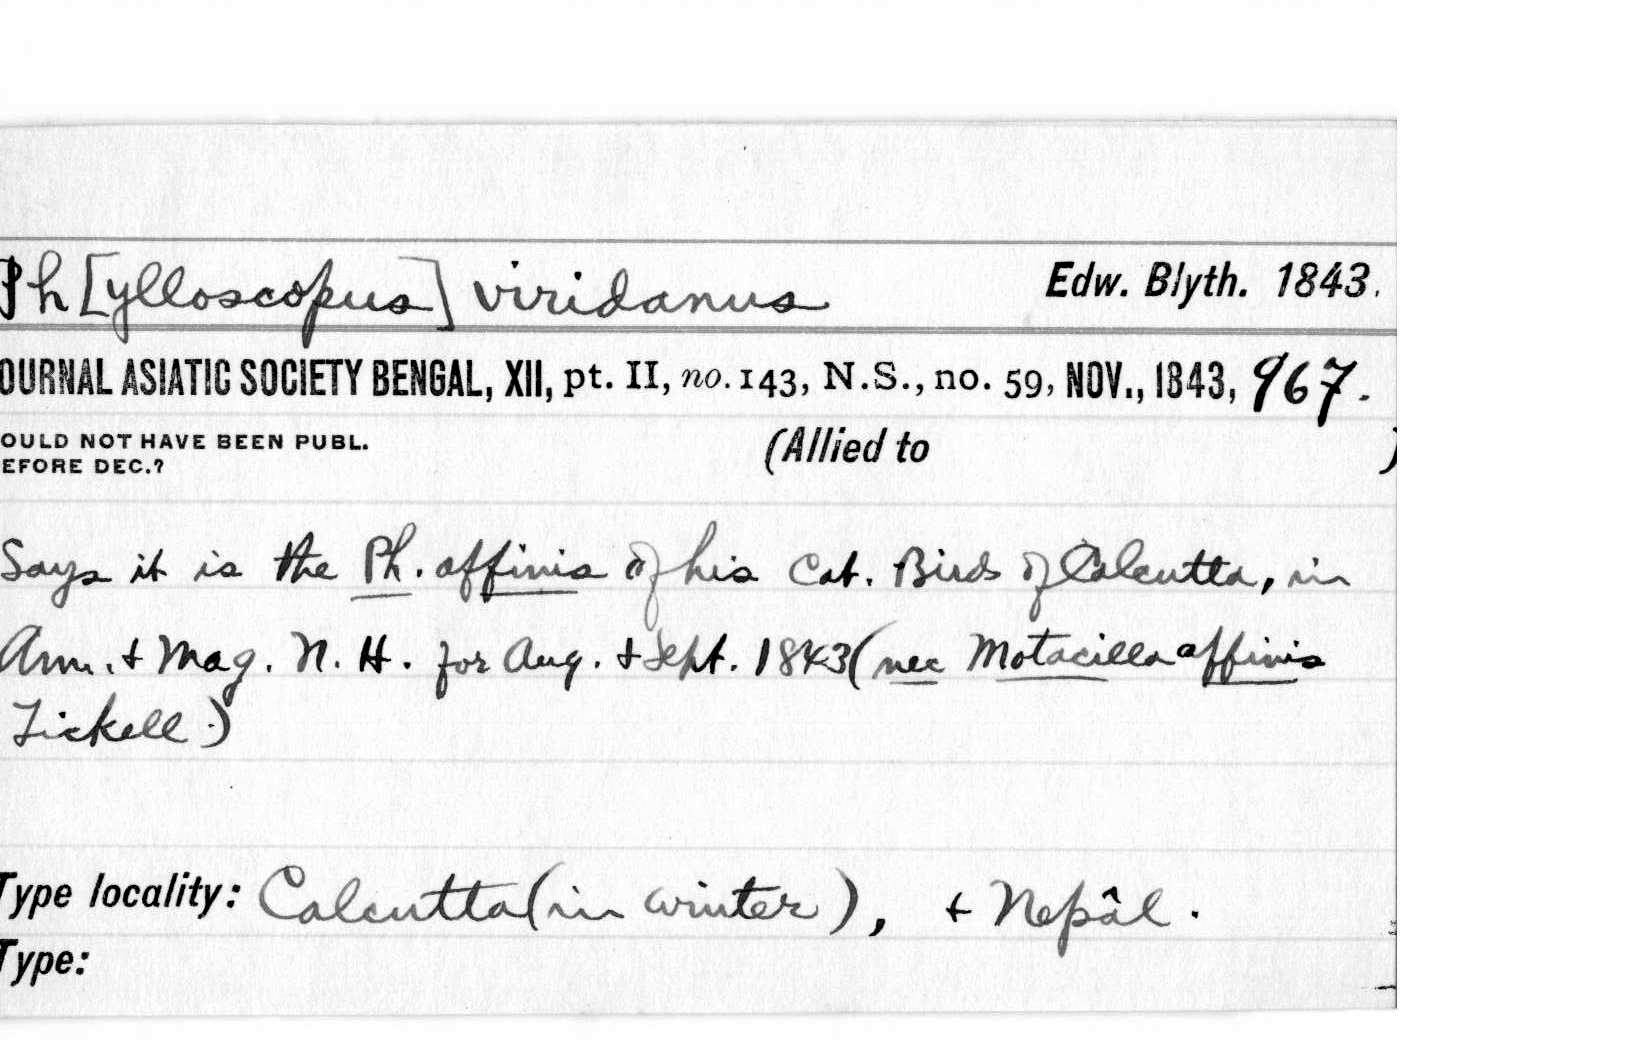 Ph[ylloscopus] viridanus Edw. Blyth. 1843.
OURNAL ASIATIC SOCIETY BENGAL, XII, pt. II, no. 143, N.S., no. 59, NOV., 1843, 967.
OULD NOT HAVE BEEN PUBL. (Allied to )
EFORE DEC.?
Says it is the Ph. affinis of his Cat. Birds of Calcutta, in
Ann. + Mag. N. H. for Aug. + Sept. 1843 (nec Motacilla affinis
Tickell.)
Type locality: Calcutta (in winter), + Nepâl.
Type: